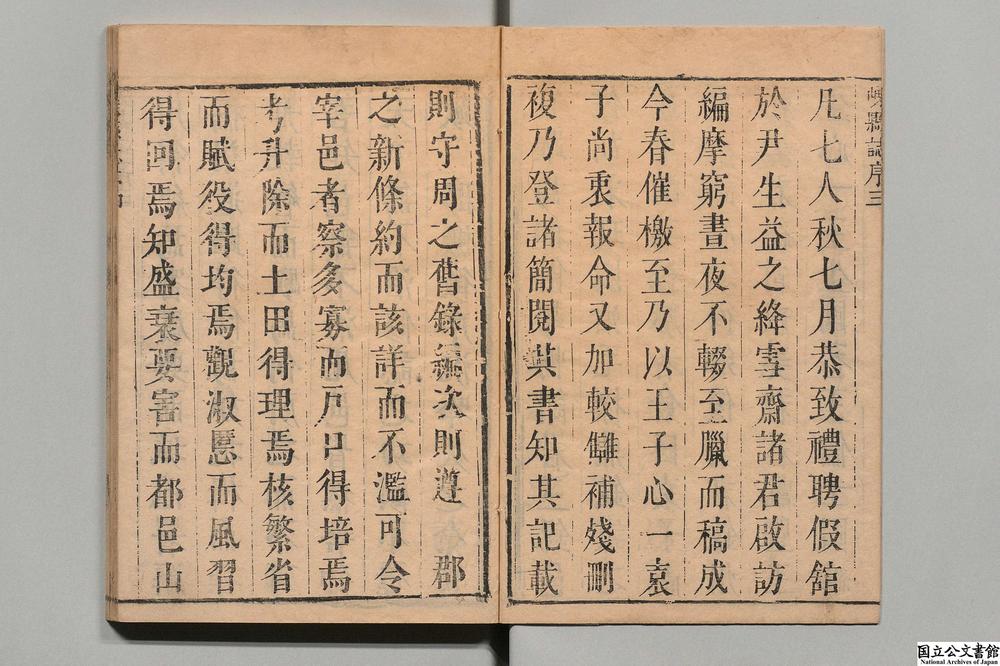 嵊縣誌序三
凡七人秋七月恭致禮聘假舘
於尹生益之絳雪齋諸君啟訪
編摩窮晝夜不輟至臘而稿成
今春催檄至乃以王子心一袁
子尚衷報命又加較讎補殘刪
複乃登諸簡閱其書知其記載
則守周之舊錄編次則遵 郡
之新條約而該詳而不濫可令
宰邑者察多寡而戶口得培焉
考升除而土田得理焉核繁省
而賦役得均焉觀淑慝而風習
得回焉知盛衰要害而都邑山
国立公文書館
National Archives of Japan